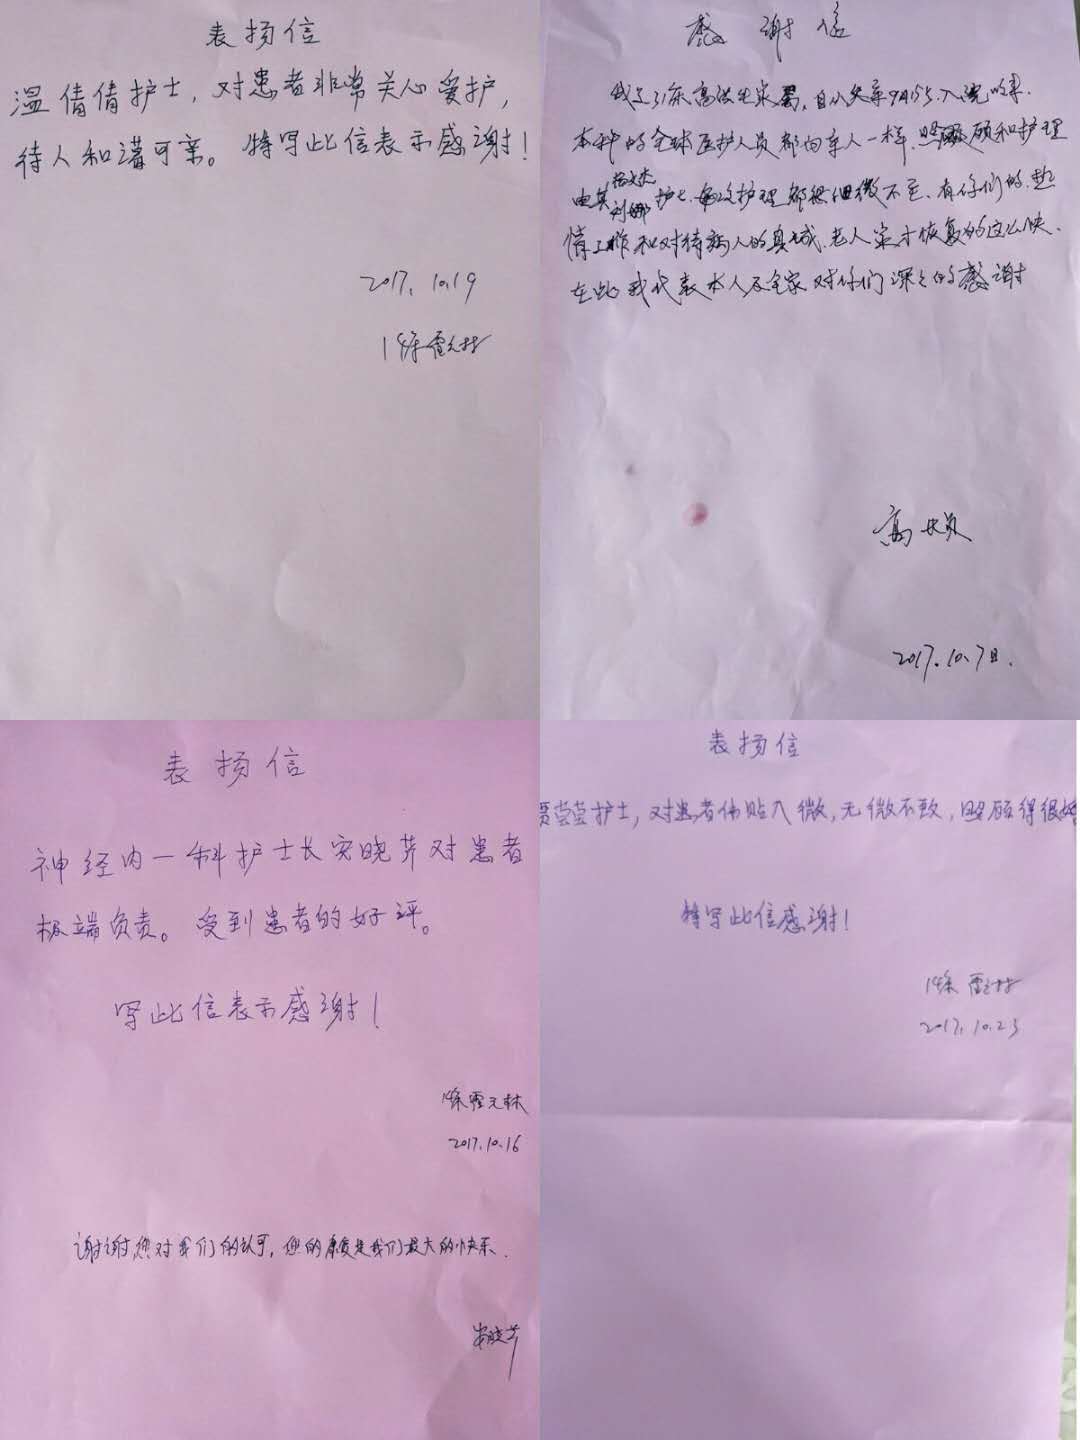 表扬信
温倩倩护士，对患者非常关心爱护，
待人和蔼可亲。特写此信表示感谢！
2017.10.19
14床
感谢信
我是31床高洪生家属，自从父亲9月15号入院以来.
本科的全体医护人员都向亲人一样.照顾和护理
由其 刘娜护士.每次护理都很细微不至、有你们的热
情工作和对待病人的真诚、老人家才恢复的这么快.
在此我代表本人及全家对你们深深的感谢
高
2017.10.7日.
表扬信
神经内一科护士长安晓芹对患者
极端负责。受到患者的好评。
写此信表示感谢！
14床雷元林
2017.10.16
谢谢您对我们的认可，您的康复是我们最大的快乐.
安晓芹
表扬信
贾莹莹护士，对患者体贴入微，无微不致，照顾得很好
特写此信感谢！
14床
2017.10.23